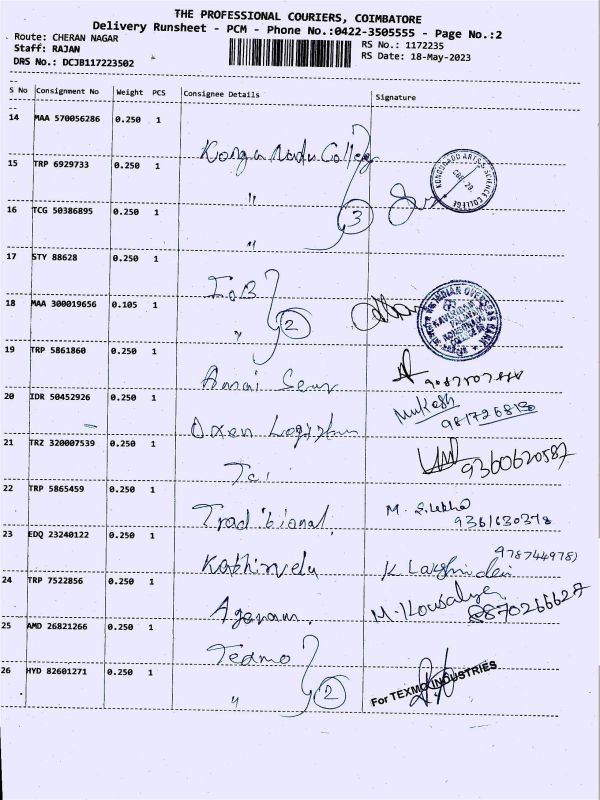 THE PROFESSIONAL COURIERS, COIMBATORE
Delivery Runsheet - PCM - Phone No.:0422-3505555 - Page No.:2
Route: CHERAN NAGAR
RS No.: 1172235
Staff: RAJAN
RS Date: 18-May-2023
DRS No.: DCJB117223502
S No Consignment No Weight PCS Consignee Details Signature
14 MAA 570056286 0.250 1 Kongu Nadu College
15 TRP 6929733 0.250 1 "
KONGUNADU ARTS & SCIENCE COLLEGE
16 TCG 50386895 0.250 1 " 3
17 STY 88628 0.250 1 IOB
INDIAN OVERSEAS BANK
18 MAA 300019656 0.105 1 " 2
19 TRP 5861860 0.250 1 Annai
20 IDR 50452926 0.250 1 Mukesh
21 TRZ 320007539 0.250 1 Tai 9360620587
22 TRP 5865459 0.250 1 Traditional M. S.lekha
9361630378
23 EDQ 23240122 0.250 1 Kathirvelu K Lakshmidevi
24 TRP 7522856 0.250 1 M. Kowsalya
8870266627
25 AMD 26821266 0.250 1
26 HYD 82601271 0.250 1 " 2 For TEXMO INDUSTRIES